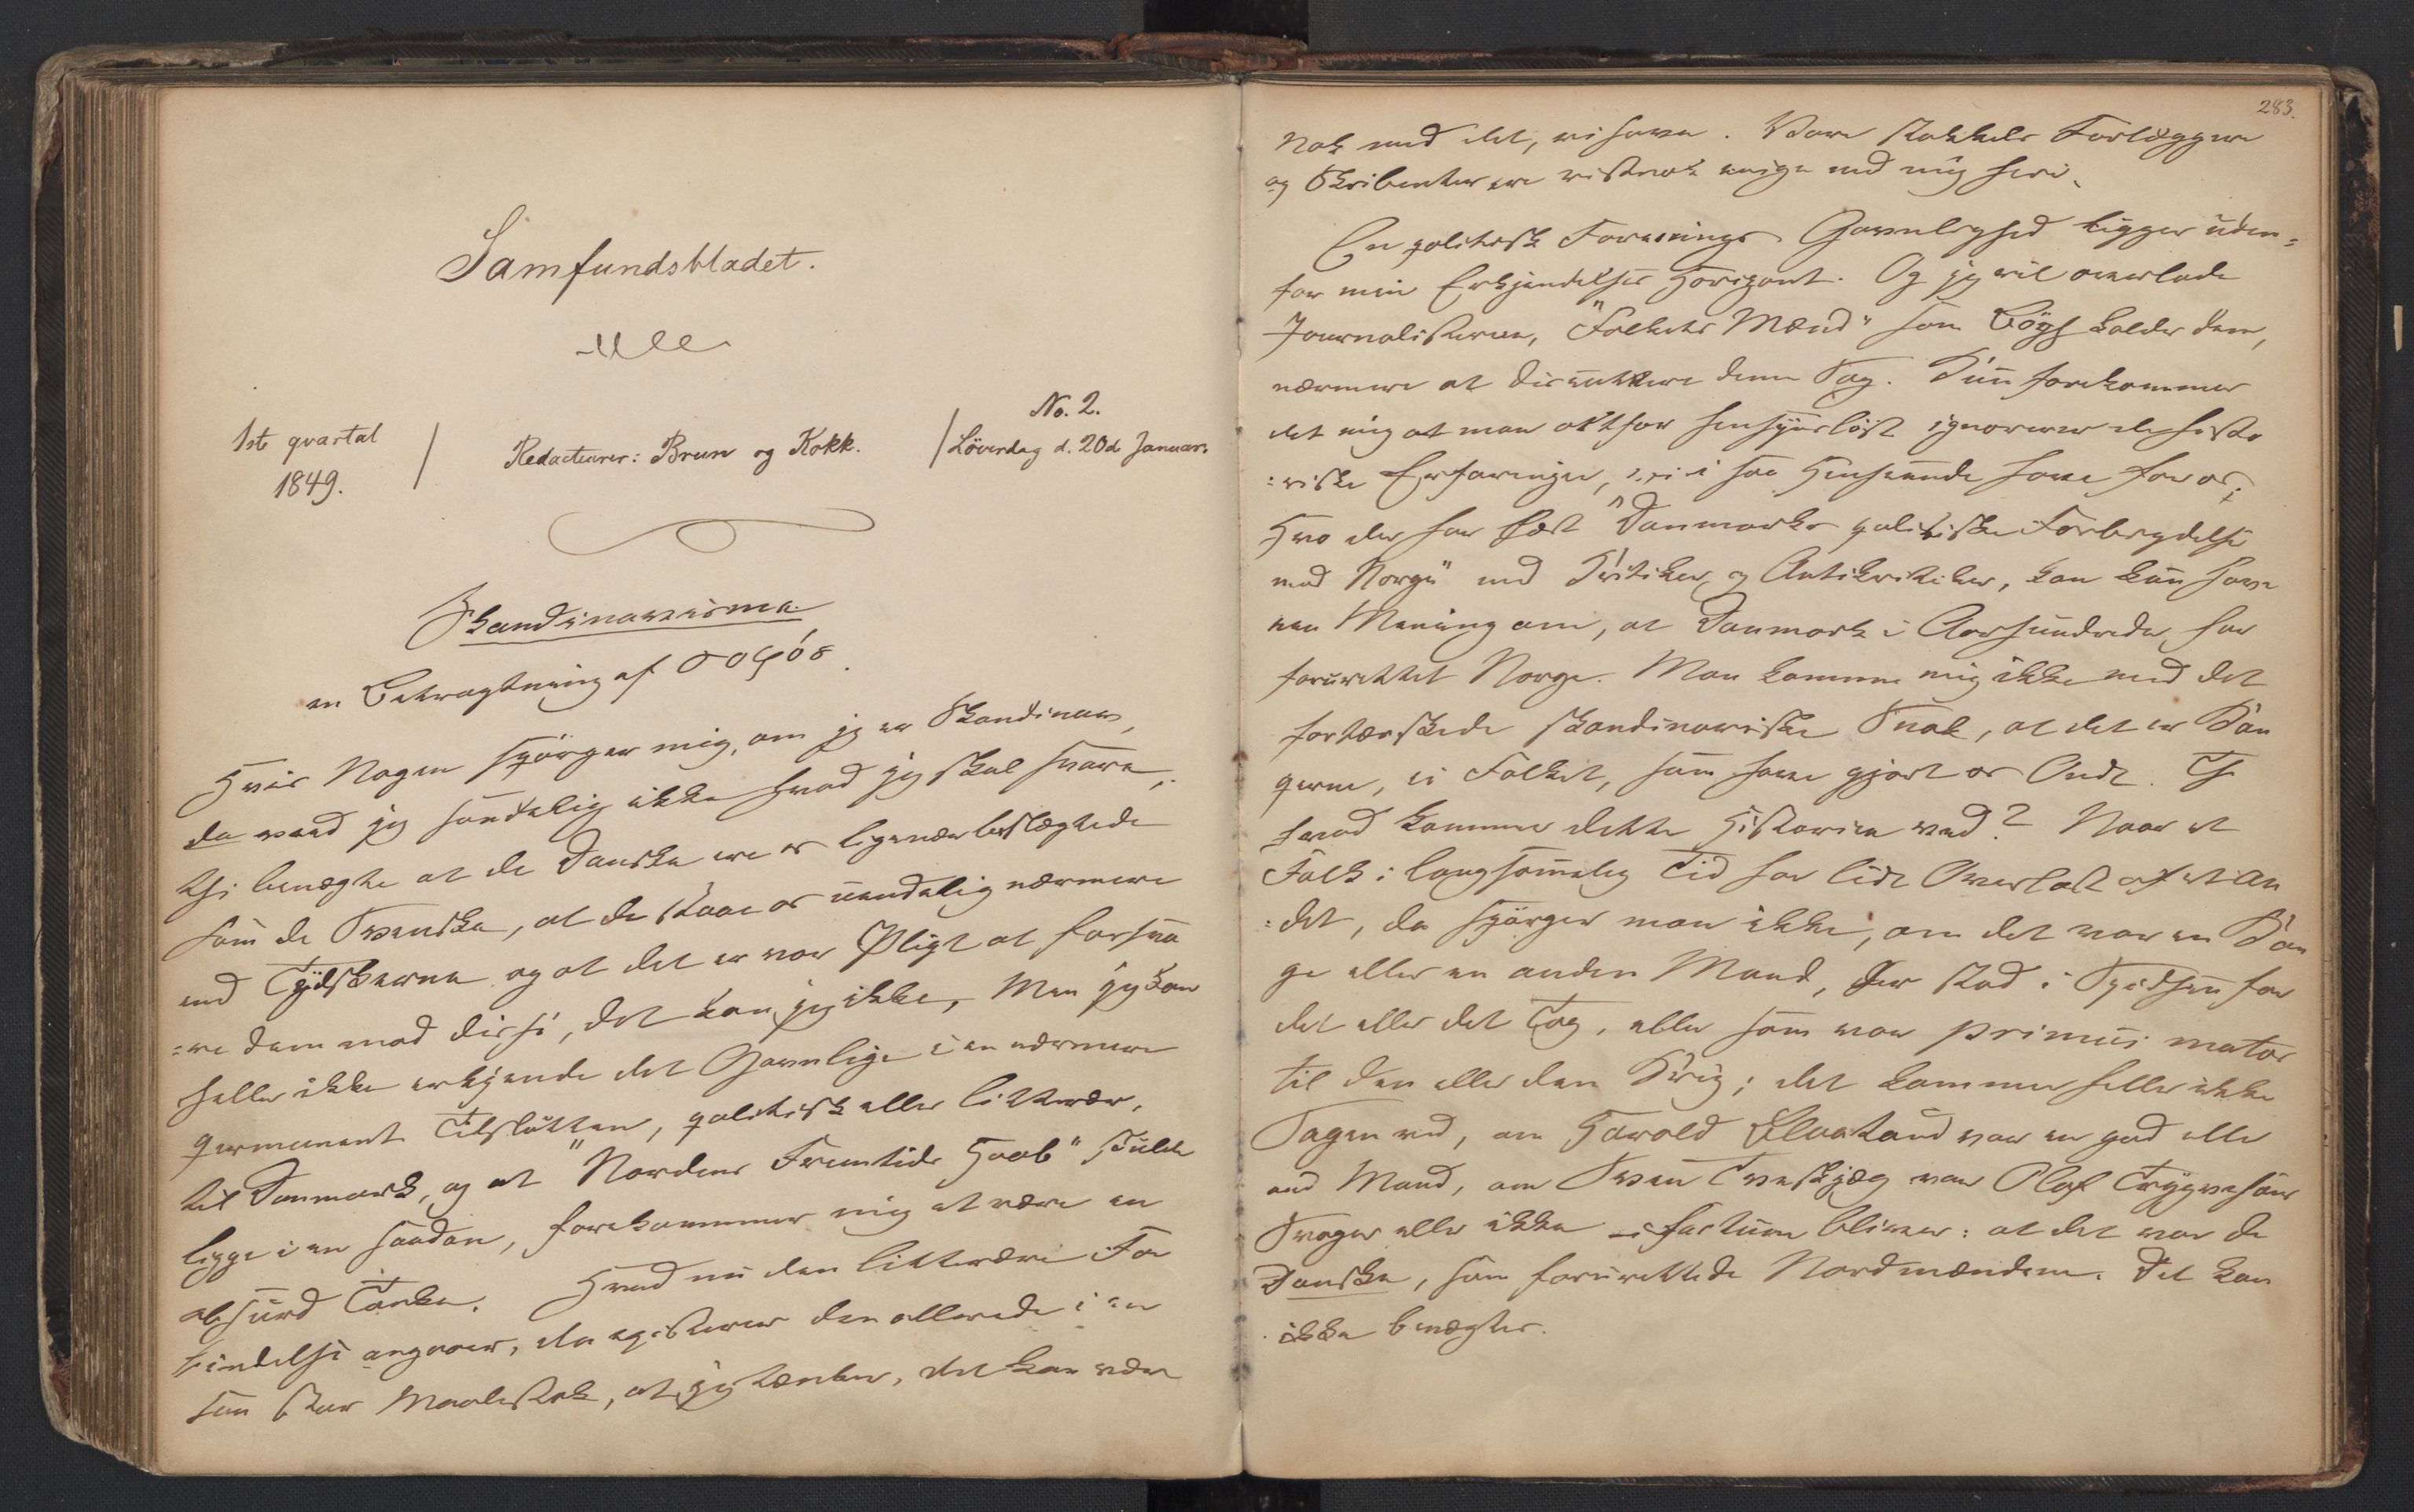 Samfundsbladet.
1ste qvartal
1849.
Redacteurer: Brun og Kokk.
No. 2.
Löverdag d. 20de Januar.
Skandinavisme
en Betragtning af σοφός.
Hvis Nogen spörger mig, om jeg er Skandinav,
da veed jeg sandelig ikke hvad jeg skal svare;
thi benægte at de Danske ere os ligenær beslægtede
som de Svenske, at de staae os uendelig nærmere
end Tydskerne og at det er vor Pligt at forsva
=re dem mod disse, det kan jeg ikke, Men jeg kan
heller ikke erkjende det Gavnlige i en nærmere
permanent Tilslutten, politisk eller litterær,
til Danmark, og at "Nordens Fremtids Haab" skulde
ligge i en saadan, forekommer mig at være en
absurd Tanke. Hvad nu den litterære For
bindelse angaaer, da existerer den allerede i en
saa stor Maalestok, at jeg tænker, det kan være
283.
Nok med det, vi have. Vore stakkels Forlæggere
og Skribenter ere vistnok enige med mig heri.
En politisk Forenings Gavnlighed ligger uden=
for min Erkjendelses Horizont. Og jeg vil overlade
Journalisterne, "Folkets Mænd" som Bögh kalder dem,
nærmere at discuttere denne Sag. Dun forekommer
det mig at man altfor hensynslöst ignorerer de histo
=riske Erfaringer, vi i saa Henseende have for os;
Hvo der har læst "Danmarks politiske Forbrydelse
mod Norge" med Kritiker og Antikritiker, kan kun have
een Mening om, at Danmark i Aarhundreder har
forurettet Norge. Man komme mig ikke med det
fortærskede skandinaviske Snak, at det er Kon
gerne, ei Folket, som have gjort os Ondt. Th
hvad kommer dette Historien ved? Naar et
Folk i langsommelig Tid har lidt Overlast af et an
=det, da spörger man ikke, om det var en Kon
ge eller en anden Mand, der stod i Spidsen for
det eller det Tog, eller som var primus motor
til den eller den Krig; det kommer heller ikke
Sagen ved, om Harald Blaatand var en god eller
ond Mand, om Svein Tveskjæg var Olaf Trygvesöns
Svoger eller ikke – factum bliver: at det var de
Danske, som forurettede Nordmændene. Det kan
ikke benægtes.